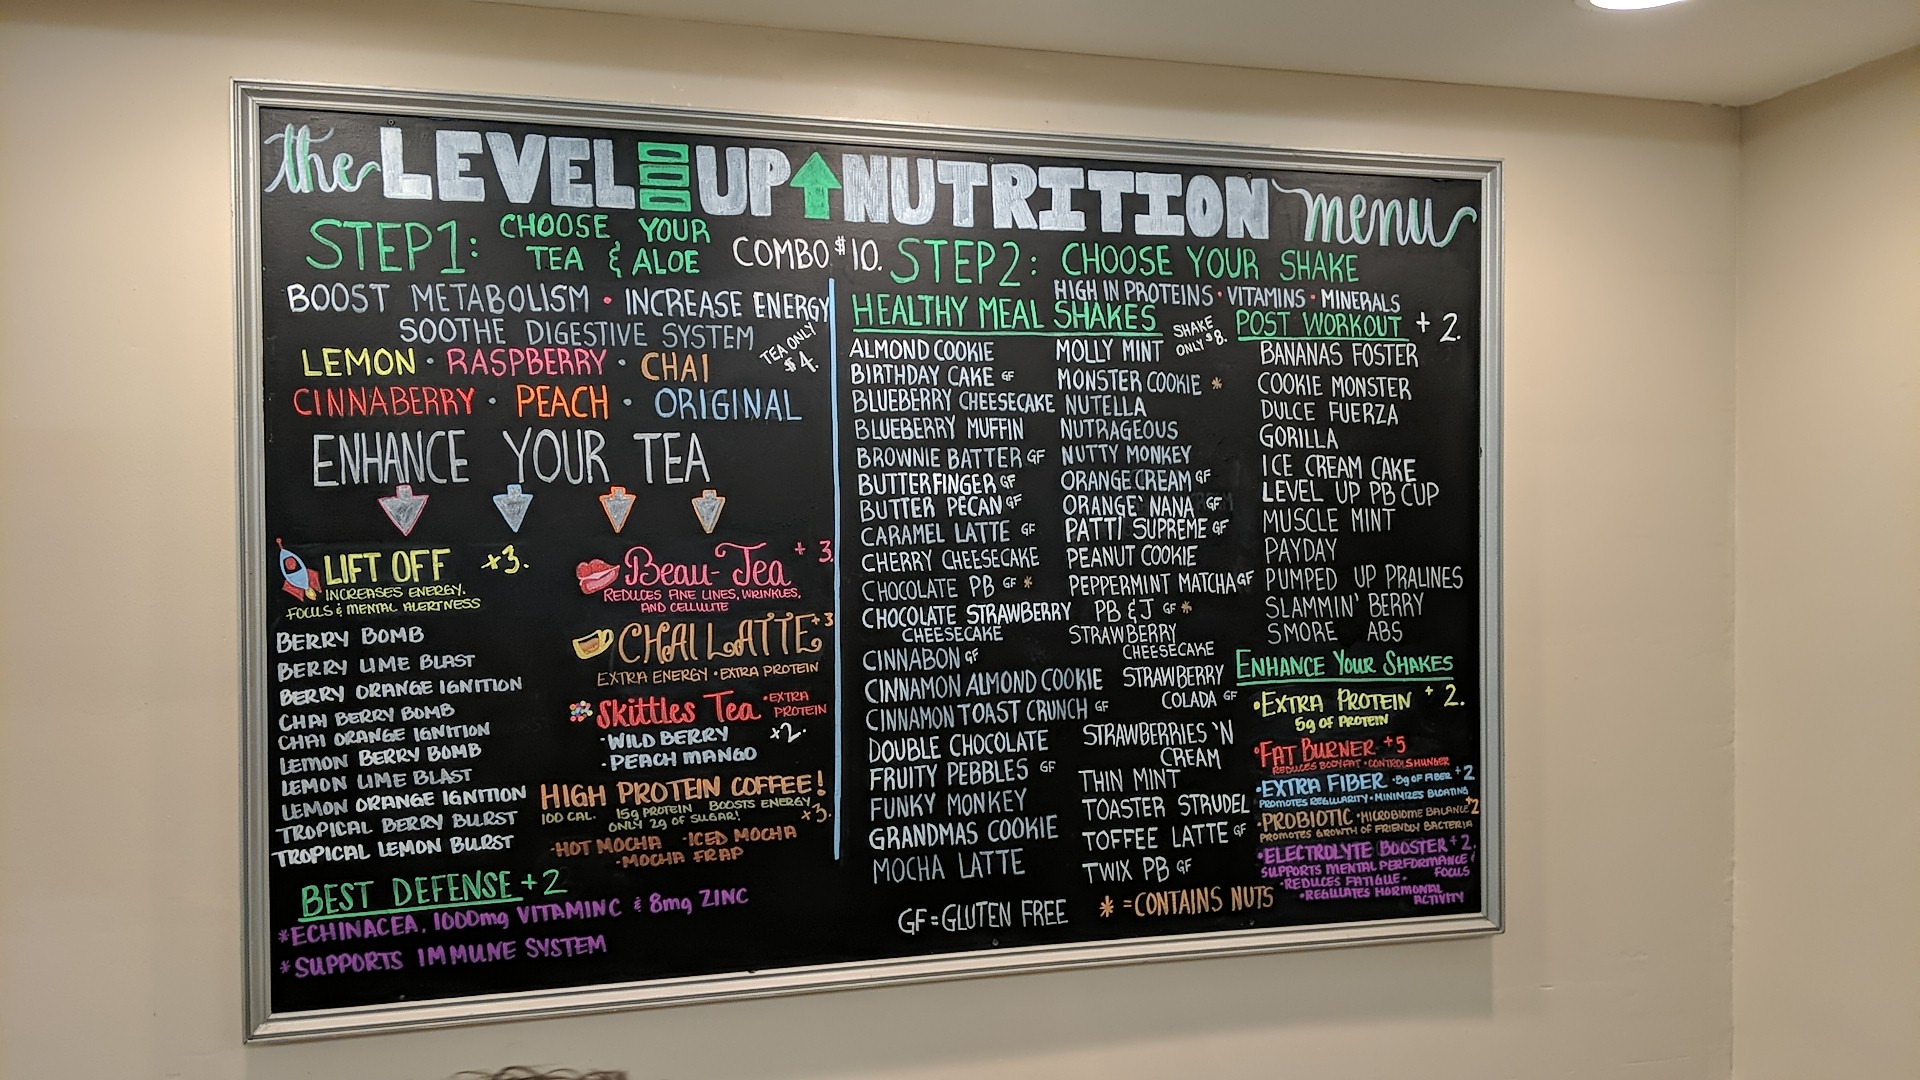 the LEVEL UP NUTRITION menu
STEP 1: CHOOSE YOUR
TEA & ALOE
COMBO $10.
BOOST METABOLISM • INCREASE ENERGY
SOOTHE DIGESTIVE SYSTEM
TEA ONLY
$4.
LEMON • RASPBERRY • CHAI
CINNABERRY • PEACH • ORIGINAL
ENHANCE YOUR TEA
LIFT OFF +3.
INCREASES ENERGY,
FOCUS & MENTAL ALERTNESS
BERRY BOMB
BERRY LIME BLAST
BERRY ORANGE IGNITION
CHAI BERRY BOMB
CHAI ORANGE IGNITION
LEMON BERRY BOMB
LEMON LIME BLAST
LEMON ORANGE IGNITION
TROPICAL BERRY BURST
TROPICAL LEMON BURST
Beau-Tea +3.
REDUCES FINE LINES, WRINKLES,
AND CELLULITE
CHAI LATTE +3
EXTRA ENERGY • EXTRA PROTEIN
Skittles Tea • EXTRA
PROTEIN
• WILD BERRY +2.
• PEACH MANGO
HIGH PROTEIN COFFEE!
100 CAL. 15g PROTEIN BOOSTS ENERGY
ONLY 2g OF SUGAR! +3.
• HOT MOCHA • ICED MOCHA
• MOCHA FRAP
BEST DEFENSE +2
*ECHINACEA, 1000mg VITAMIN C & 8mg ZINC
*SUPPORTS IMMUNE SYSTEM
STEP 2: CHOOSE YOUR SHAKE
HIGH IN PROTEINS • VITAMINS • MINERALS
HEALTHY MEAL SHAKES
SHAKE
ONLY $8.
ALMOND COOKIE
BIRTHDAY CAKE GF
BLUEBERRY CHEESECAKE
BLUEBERRY MUFFIN
BROWNIE BATTER GF
BUTTERFINGER GF
BUTTER PECAN GF
CARAMEL LATTE GF
CHERRY CHEESECAKE
CHOCOLATE PB GF *
CHOCOLATE STRAWBERRY
CHEESECAKE
CINNABON GF
CINNAMON ALMOND COOKIE
CINNAMON TOAST CRUNCH GF
DOUBLE CHOCOLATE
FRUITY PEBBLES GF
FUNKY MONKEY
GRANDMAS COOKIE
MOCHA LATTE
MOLLY MINT
MONSTER COOKIE *
NUTELLA
NUTRAGEOUS
NUTTY MONKEY
ORANGE CREAM GF
ORANGE 'NANA GF
PATTI SUPREME GF
PEANUT COOKIE
PEPPERMINT MATCHA GF
PB & J GF *
STRAWBERRY
CHEESECAKE
STRAWBERRY
COLADA GF
STRAWBERRIES 'N
CREAM
THIN MINT
TOASTER STRUDEL
TOFFEE LATTE GF
TWIX PB GF
GF = GLUTEN FREE
* = CONTAINS NUTS
POST WORKOUT +2.
BANANAS FOSTER
COOKIE MONSTER
DULCE FUERZA
GORILLA
ICE CREAM CAKE
LEVEL UP PB CUP
MUSCLE MINT
PAYDAY
PUMPED UP PRALINES
SLAMMIN' BERRY
SMORE ABS
ENHANCE YOUR SHAKES
• EXTRA PROTEIN +2.
5g OF PROTEIN
• FAT BURNER +5
REDUCES BODY FAT • CONTROLS HUNGER
• EXTRA FIBER • 8g OF FIBER +2
PROMOTES REGULARITY • MINIMIZES BLOATING
• PROBIOTIC • MICROBIOME BALANCE +2
PROMOTES GROWTH OF FRIENDLY BACTERIA
• ELECTROLYTE BOOSTER +2.
SUPPORTS MENTAL PERFORMANCE &
FOCUS
• REDUCES FATIGUE •
• REGULATES HORMONAL
ACTIVITY